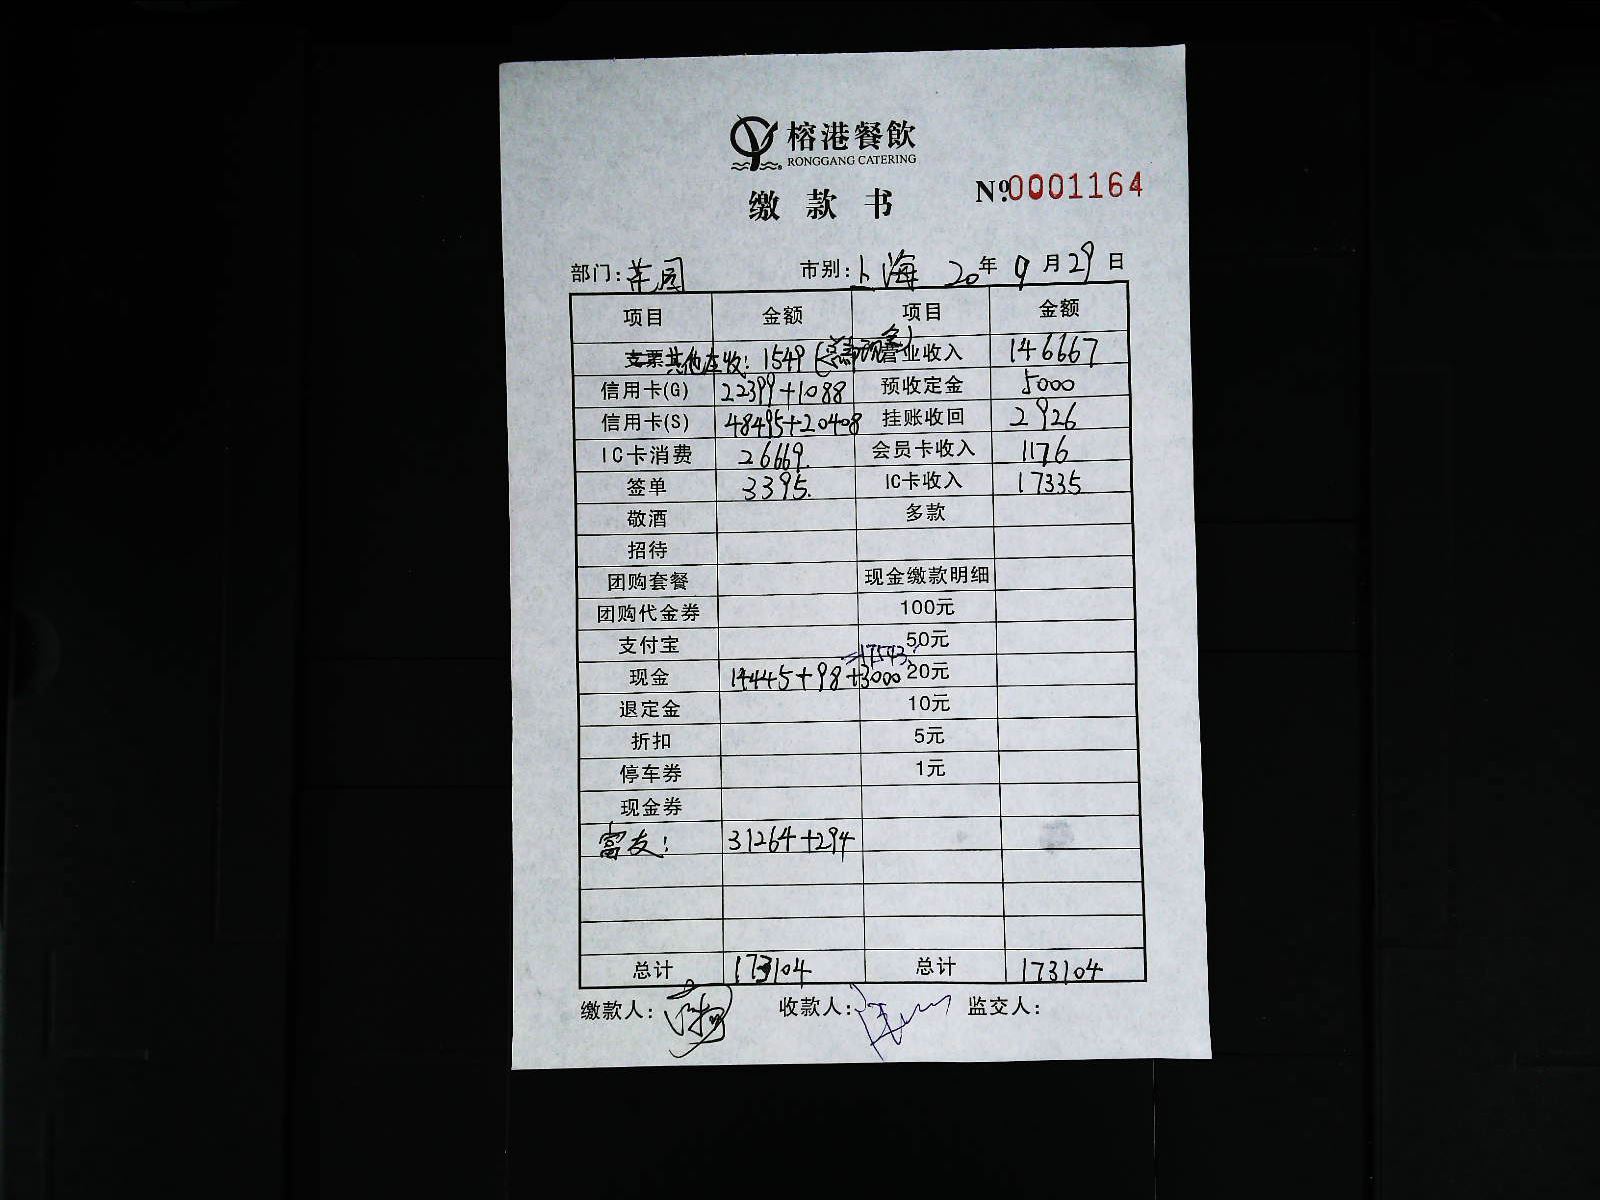 榕港餐飲
RONGGANG CATERING
缴款书
Nº 0001164
部门: 市别: 上海 20年 9月 29日
项目 金额 项目 金额
支票 其他应收: 1549 ( 现金) 营业收入 146667
信用卡(G) 22399+1088 预收定金 5000
信用卡(S) 48495+20408 挂账收回 2926
IC卡消费 26669. 会员卡收入 1176
签单 3395. IC卡收入 17335
敬酒 多款
招待
团购套餐 现金缴款明细
团购代金券 100元
支付宝 50元
=17543.
现金 14445+98+3000 20元
退定金 10元
折扣 5元
停车券 1元
现金券
富友: 31264+294
总计 173104 总计 173104
缴款人: 收款人: 监交人: